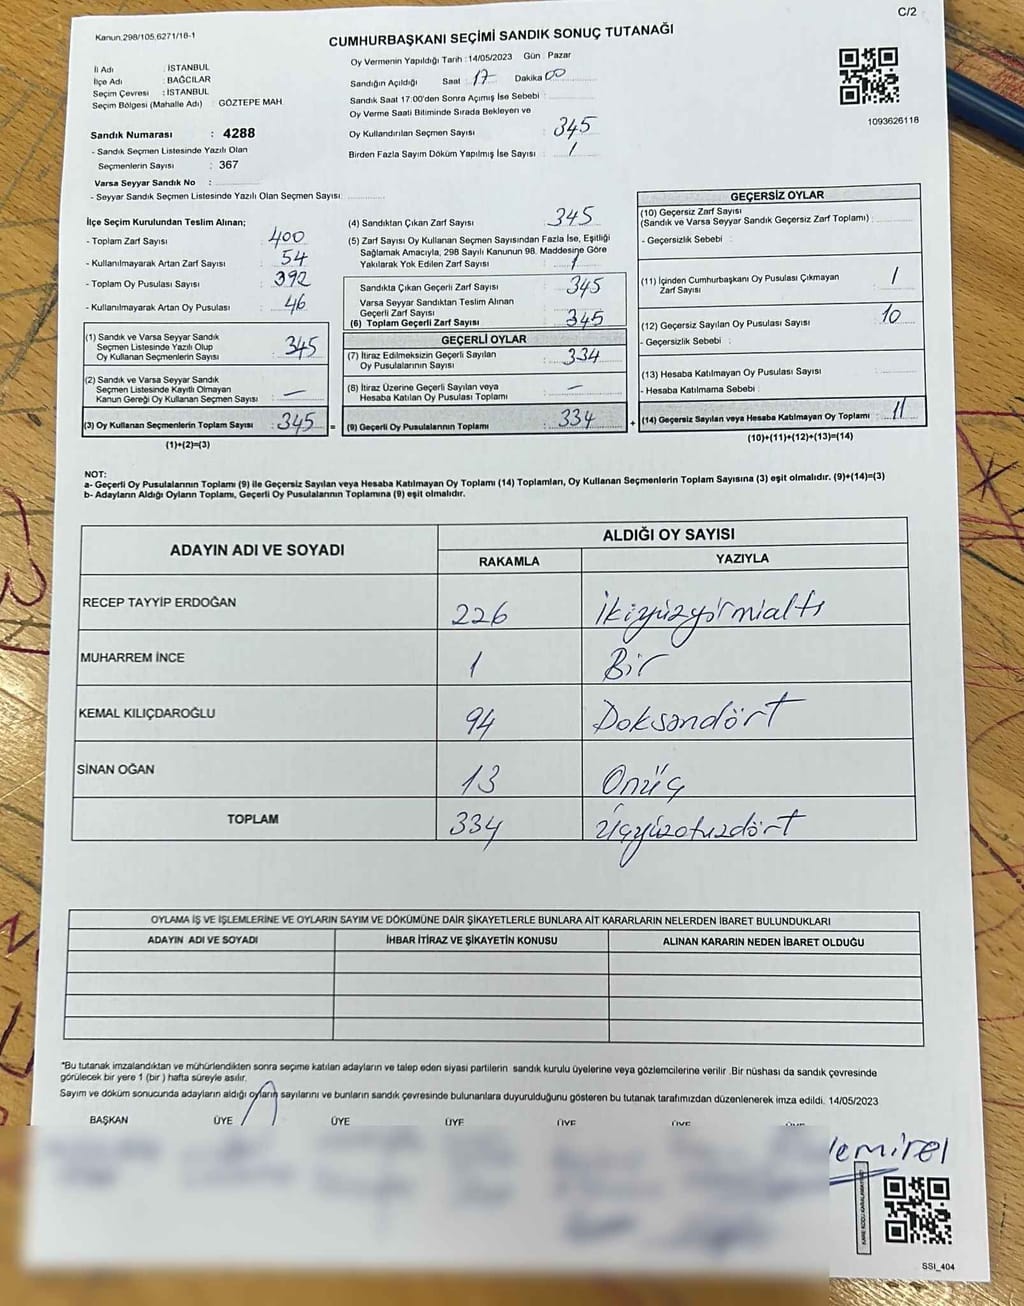 C/2
Kanun.298/105,6271/18-1
CUMHURBAŞKANI SEÇİMİ SANDIK SONUÇ TUTANAĞI
İl Adı : İSTANBUL
İlçe Adı : BAĞCILAR
Seçim Çevresi : İSTANBUL
Seçim Bölgesi (Mahalle Adı) : GÖZTEPE MAH.
Sandık Numarası : 4288
- Sandık Seçmen Listesinde Yazılı Olan
Seçmenlerin Sayısı : 367
Varsa Seyyar Sandık No :
- Seyyar Sandık Seçmen Listesinde Yazılı Olan Seçmen Sayısı:
Oy Vermenin Yapıldığı Tarih : 14/05/2023 Gün : Pazar
Sandığın Açıldığı Saat : 17 Dakika 00
Sandık Saat 17.00'den Sonra Açımış İse Sebebi :
Oy Verme Saati Bitiminde Sırada Bekleyen ve
Oy Kullandırılan Seçmen Sayısı : 345
Birden Fazla Sayım Döküm Yapılmış İse Sayısı : 1
1093626118
İlçe Seçim Kurulundan Teslim Alınan;
- Toplam Zarf Sayısı : 400
- Kullanılmayarak Artan Zarf Sayısı : 54
- Toplam Oy Pusulası Sayısı : 392
- Kullanılmayarak Artan Oy Pusulası : 46
(1) Sandık ve Varsa Seyyar Sandık
Seçmen Listesinde Yazılı Olup
Oy Kullanan Seçmenlerin Sayısı : 345
(2) Sandık ve Varsa Seyyar Sandık
Seçmen Listesinde Kayıtlı Olmayan
Kanun Gereği Oy Kullanan Seçmen Sayısı : —
(3) Oy Kullanan Seçmenlerin Toplam Sayısı : 345 =
(1)+(2)=(3)
(4) Sandıktan Çıkan Zarf Sayısı : 345
(5) Zarf Sayısı Oy Kullanan Seçmen Sayısından Fazla İse, Eşitliği
Sağlamak Amacıyla, 298 Sayılı Kanunun 98. Maddesine Göre
Yakılarak Yok Edilen Zarf Sayısı : 1
Sandıkta Çıkan Geçerli Zarf Sayısı : 345
Varsa Seyyar Sandıktan Teslim Alınan
Geçerli Zarf Sayısı :
(6) Toplam Geçerli Zarf Sayısı : 345
GEÇERLİ OYLAR
(7) İtiraz Edilmeksizin Geçerli Sayılan
Oy Pusulalarının Sayısı : 334
(8) İtiraz Üzerine Geçerli Sayılan veya
Hesaba Katılan Oy Pusulası Toplamı : —
(9) Geçerli Oy Pusulalarının Toplamı : 334 +
GEÇERSİZ OYLAR
(10) Geçersiz Zarf Sayısı
(Sandık ve Varsa Seyyar Sandık Geçersiz Zarf Toplamı) :
- Geçersizlik Sebebi :
(11) İçinden Cumhurbaşkanı Oy Pusulası Çıkmayan
Zarf Sayısı : 1
(12) Geçersiz Sayılan Oy Pusulası Sayısı : 10
- Geçersizlik Sebebi :
(13) Hesaba Katılmayan Oy Pusulası Sayısı :
- Hesaba Katılmama Sebebi :
(14) Geçersiz Sayılan veya Hesaba Katılmayan Oy Toplamı : 11
(10)+(11)+(12)+(13)=(14)
NOT:
a- Geçerli Oy Pusulalarının Toplamı (9) ile Geçersiz Sayılan veya Hesaba Katılmayan Oy Toplamı (14) Toplamları, Oy Kullanan Seçmenlerin Toplam Sayısına (3) eşit olmalıdır. (9)+(14)=(3)
b- Adayların Aldığı Oyların Toplamı, Geçerli Oy Pusulalarının Toplamına (9) eşit olmalıdır.
ADAYIN ADI VE SOYADI ALDIĞI OY SAYISI
RAKAMLA YAZIYLA
RECEP TAYYİP ERDOĞAN 226 İkiyüzyirmialtı
MUHARREM İNCE 1 Bir
KEMAL KILIÇDAROĞLU 94 Doksandört
SİNAN OĞAN 13 Onüç
TOPLAM 334 Üçyüzotuzdört
OYLAMA İŞ VE İŞLEMLERİNE VE OYLARIN SAYIM VE DÖKÜMÜNE DAİR ŞİKAYETLERLE BUNLARA AİT KARARLARIN NELERDEN İBARET BULUNDUKLARI
ADAYIN ADI VE SOYADI İHBAR İTİRAZ VE ŞİKAYETİN KONUSU ALINAN KARARIN NEDEN İBARET OLDUĞU
*Bu tutanak imzalandıktan ve mühürlendikten sonra seçime katılan adayların ve talep eden siyasi partilerin sandık kurulu üyelerine veya gözlemcilerine verilir .Bir nüshası da sandık çevresinde
görülecek bir yere 1 (bir) hafta süreyle asılır.
Sayım ve döküm sonucunda adayların aldığı oyların sayılarını ve bunların sandık çevresinde bulunanlara duyurulduğunu gösteren bu tutanak tarafımızdan düzenlenerek imza edildi. 14/05/2023
BAŞKAN ÜYE ÜYE ÜYE ÜYE ÜYE ÜYE
emirel
SSI_404